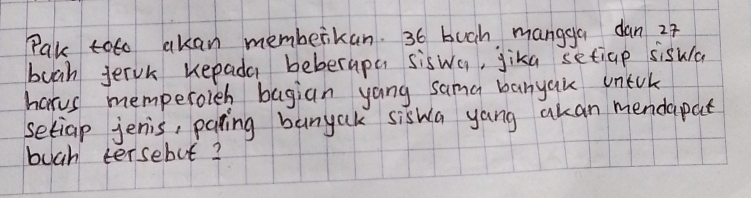 Pak toto akan memberikan. 36 buah mangga dan 27
buah jeruk kepada beberapa siswa, jika setiap siswa
harus memperoleh bagian yang sama banyak untuk
setiap jenis, paling banyak siswa yang akan mendapat
buah tersebut?